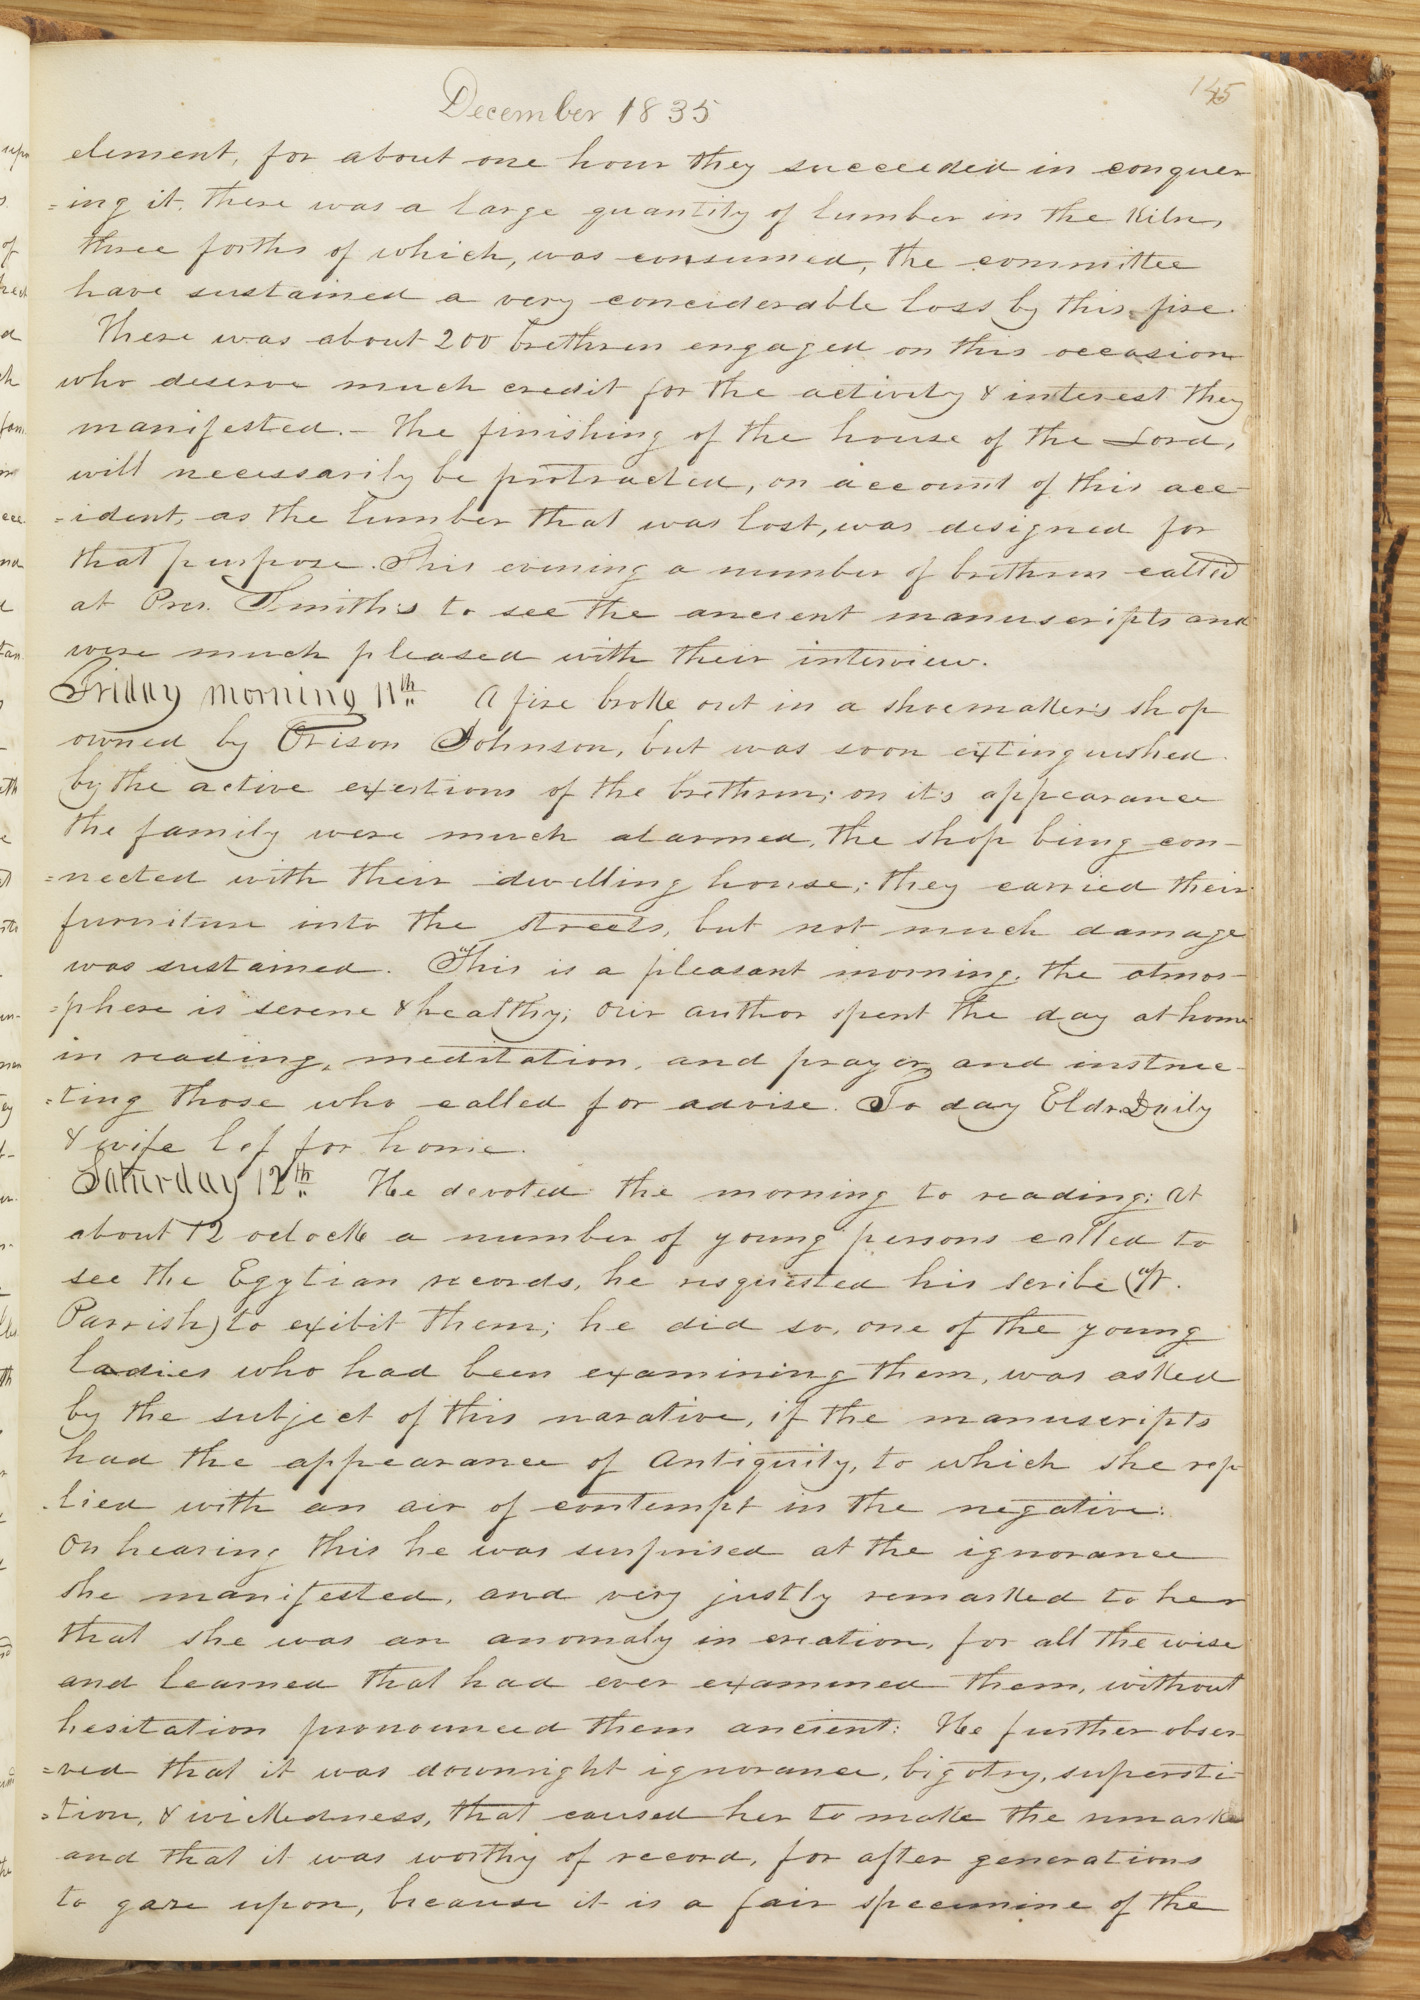 145
December 1835
element, for about one hour they succeeded in conquer
=ing it. there was a large quantity of lumber in the Kiln,
three forths of which, was consumed, the committee
have sustained a very conciderable loss by this fire.
There was about 200 brethren engaged on this occasion
who deserve much credit for the activity & interest they
manifested.– The finishing of the house of the Lord,
will necessarily be protracted, on account of this acc-
=ident, as the lumber that was lost, was designed for
that purpose. This evening a number of brethren called
at Pres. Smith's to see the ancient manuscripts and
were much pleased with their interview.
Friday morning 11th A fire broke out in a shoemaker's shop
owned by Orison Johnson, but was soon extinguished
by the active exertions of the brethren; on it's appearance
the family were much alarmed, the shop being con-
=nected with their dwelling house; they carried their
furniture into the streets, but not much damage
was sustained. "This is a pleasant morning, the atmos-
=phere is serene & healthy; our author spent the day at home
in reading, meditation, and prayer, and instruc-
=ting those who called for advise. To day Eldr. Daily
& wife lef for home.
Saturday 12th He devoted the morning to reading; at
about 12 oclock a number of young persons called to
see the Egytian records, he requested his scribe (W.
Parrish) to exibit them; he did so, one of the young
ladies who had been examining them, was asked
by the subject of this narative, if the manuscripts
had the appearance of Antiquity, to which she rep
-lied with an air of contempt in the negative:
On hearing this he was surprised at the ignorance
she manifested, and very justly remarked to her
that she was an anomaly in creation, for all the wise
and learned that had ever examined them, without
hesitation pronounced them ancient: He further obser
=ved that it was downright ignorance, bigotry, supersti-
=tion, & wickedness, that caused her to make the remark
and that it was worthy of record, for after generations
to gaze upon, because it is a fair specimine of the